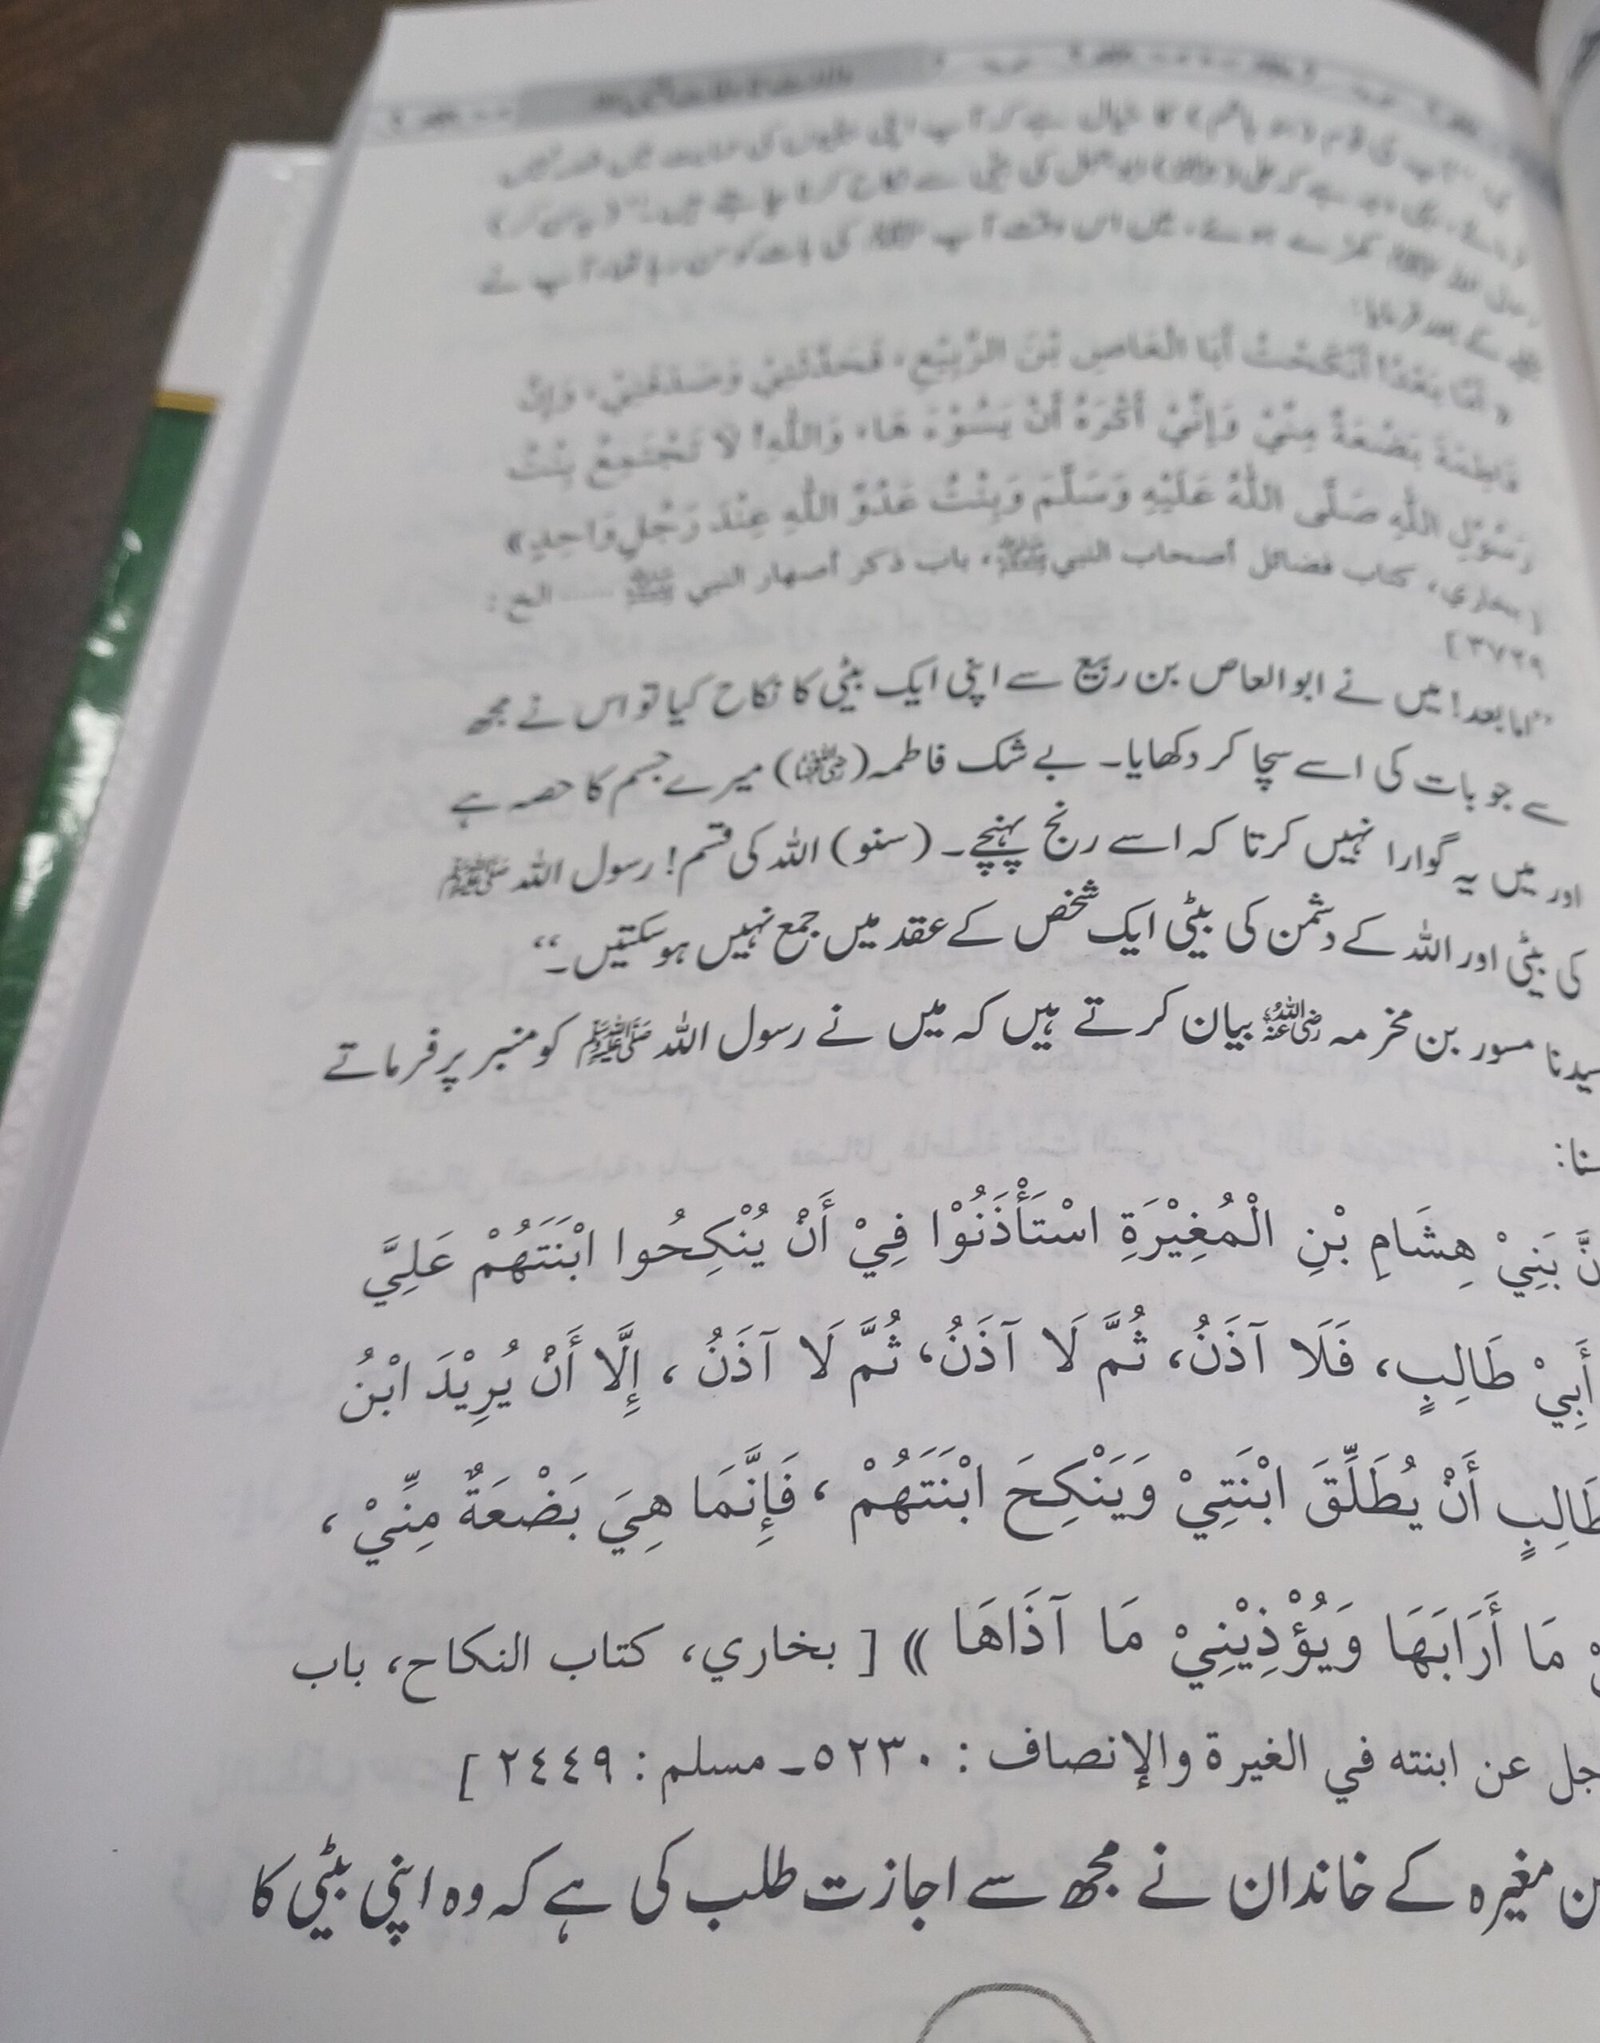 کی ”آپ کی قوم (بنو ہاشم) کا خیال ہے کہ آپ اپنی بیٹیوں کی حمایت میں غصہ نہیں
کے بعد فرمایا:
« أَمَّا بَعْدُ! أَنْكَحْتُ أَبَا الْعَاصِ بْنَ الرَّبِيْعِ، فَحَدَّثَنِيْ وَصَدَقَنِيْ، وَإِنَّ
فَاطِمَةَ بَضْعَةٌ مِنِّيْ وَإِنِّيْ أَكْرَهُ أَنْ يَسُوْءَ هَا، وَاللّٰهِ! لَا تَجْتَمِعُ بِنْتُ
رَسُوْلِ اللّٰهِ صَلَّى اللّٰهُ عَلَيْهِ وَسَلَّمَ وَبِنْتُ عَدُوِّ اللّٰهِ عِنْدَ رَجُلٍ وَاحِدٍ »
[ بخاري، كتاب فضائل أصحاب النبي ﷺ، باب ذكر أصهار النبي ﷺ ..... الخ :
٣٧٢٩ ]
”اما بعد! میں نے ابو العاص بن ربیع سے اپنی ایک بیٹی کا نکاح کیا تو اس نے مجھ
سے جو بات کی اسے سچا کر دکھایا۔ بے شک فاطمہ (رضی اللہ عنہا) میرے جسم کا حصہ ہے
اور میں یہ گوارا نہیں کرتا کہ اسے رنج پہنچے۔ (سنو) اللہ کی قسم! رسول اللہ ﷺ
کی بیٹی اور اللہ کے دشمن کی بیٹی ایک شخص کے عقد میں جمع نہیں ہو سکتیں۔“
سیدنا مسور بن مخرمہ رضی اللہ عنہ بیان کرتے ہیں کہ میں نے رسول اللہ ﷺ کو منبر پر فرماتے
سنا:
بَنِيْ هِشَامِ بْنِ الْمُغِيْرَةِ اسْتَأْذَنُوْا فِيْ أَنْ يُنْكِحُوا ابْنَتَهُمْ عَلِيَّ
أَبِيْ طَالِبٍ، فَلَا آذَنُ، ثُمَّ لَا آذَنُ، ثُمَّ لَا آذَنُ، إِلَّا أَنْ يُرِيْدَ ابْنُ
طَالِبٍ أَنْ يُطَلِّقَ ابْنَتِيْ وَيَنْكِحَ ابْنَتَهُمْ، فَإِنَّمَا هِيَ بَضْعَةٌ مِنِّيْ،
مَا أَرَابَهَا وَيُؤْذِيْنِيْ مَا آذَاهَا » [ بخاري، كتاب النكاح، باب
جل عن ابنته في الغيرة والإنصاف : ٥٢٣٠۔ مسلم : ٢٤٤٩ ]
بن مغیرہ کے خاندان نے مجھ سے اجازت طلب کی ہے کہ وہ اپنی بیٹی کا